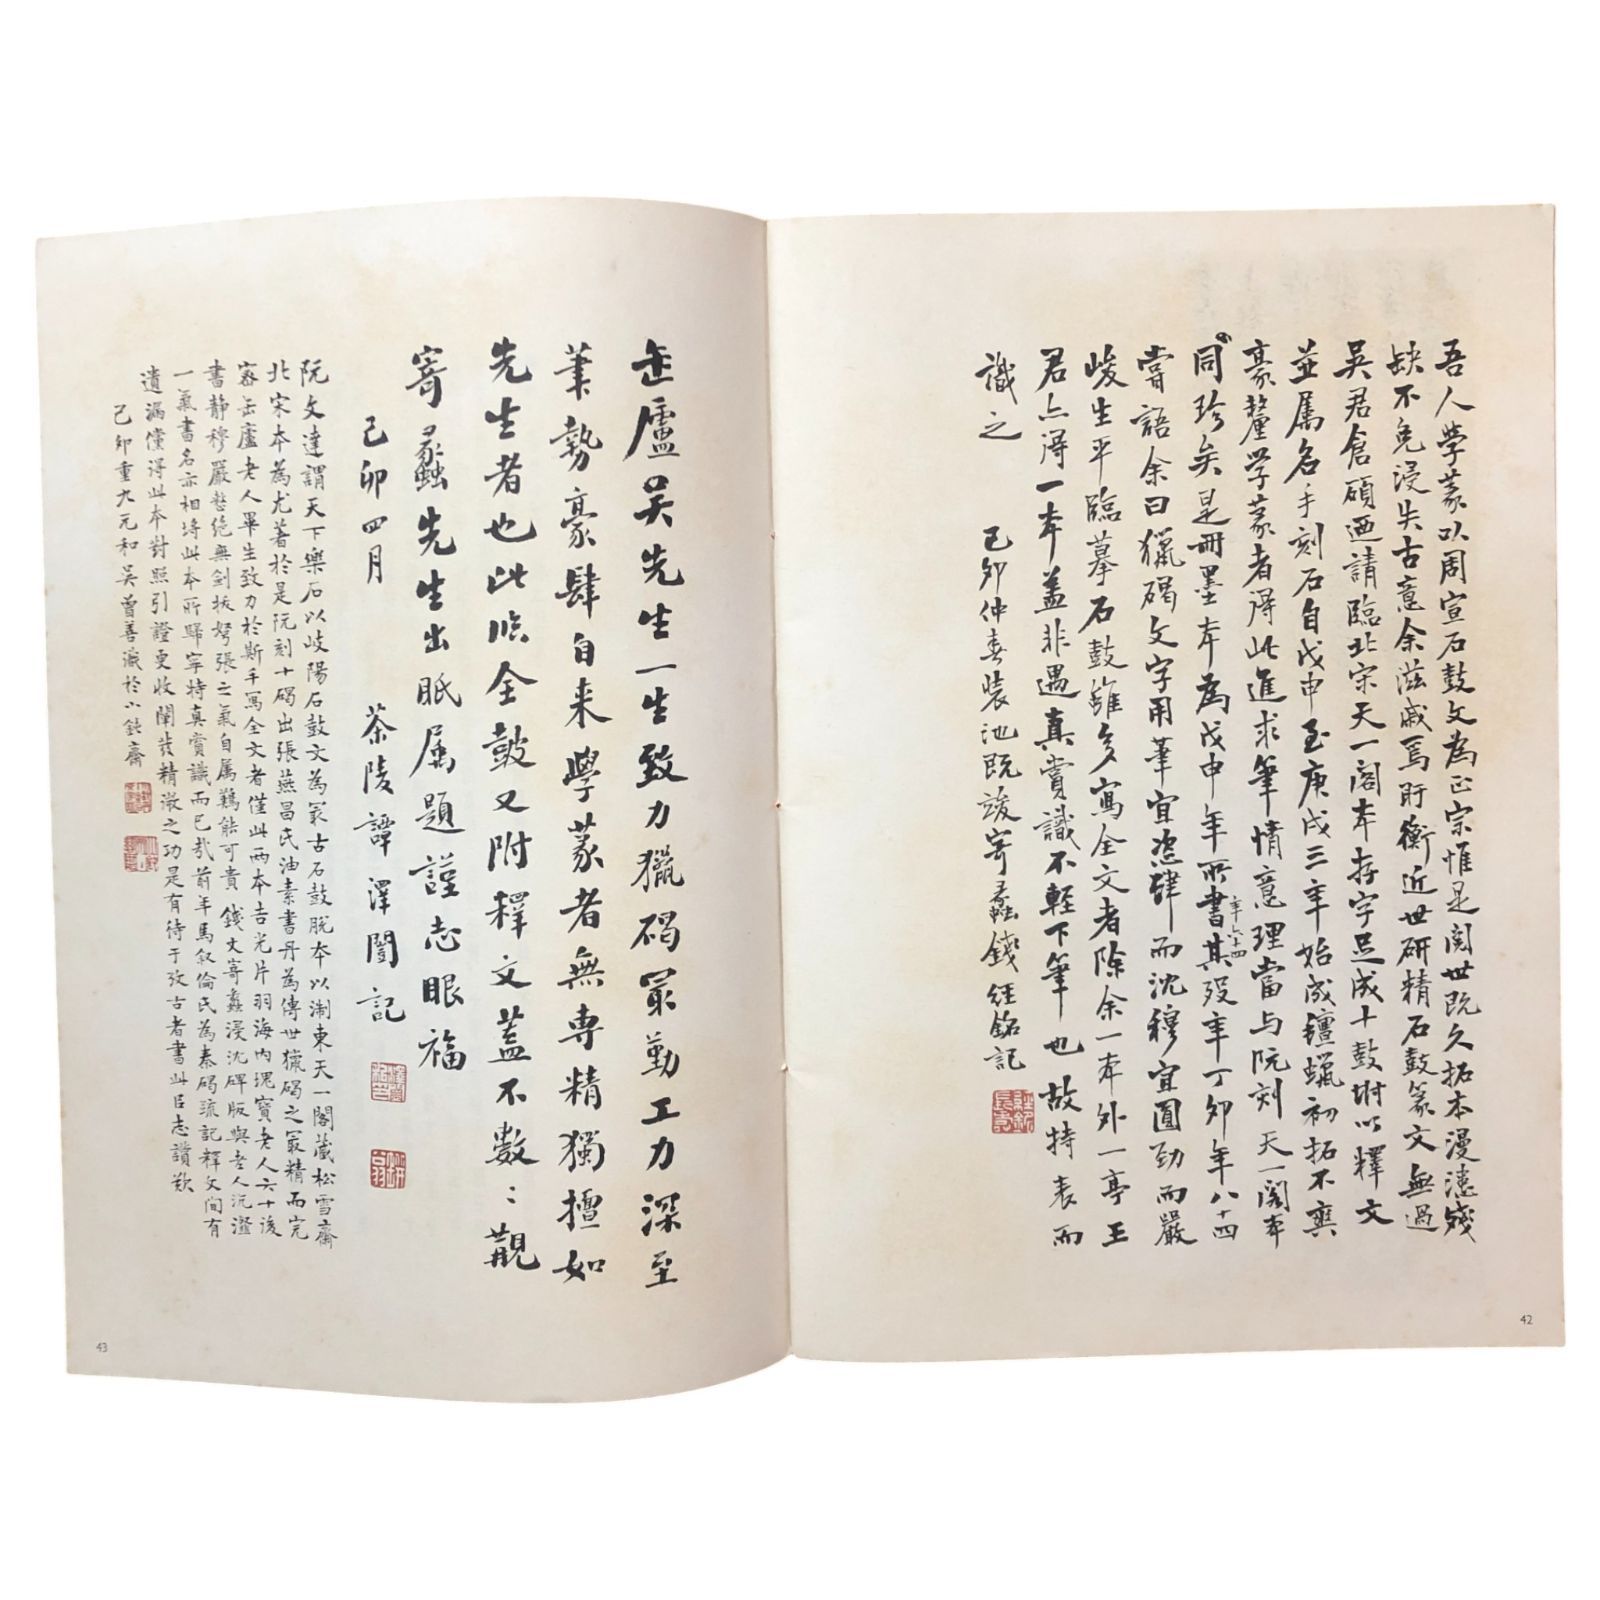 吾人學篆以周宣石鼓文為正宗惟是閱世既久拓本漫漶殘
缺不免浸失古意余滋戚焉盱衡近世研精石鼓篆文無過
吳君倉碩迺請臨北宋天一閣本存字足成十鼓坿以釋文
並属名手刻石自戊申至庚戌三年始成氊蠟初拓不爽
豪釐学篆者得此進求筆情意理當与阮刻天一閣本
同珍矣是冊墨本為戊申年所書年六十四其歿年丁卯年八十四
嘗語余曰獵碣文字用筆宜恣肆而沈穆宜圓勁而嚴
峻生平臨摹石鼓雖多寫全文者除余一本外一亭王
君亦得一本蓋非遇真賞識不輕下筆也故特表而
識之 己卯仲春裝池既竣寄蟊錢経銘記
42
缶廬吴先生一生致力獵碣冣勤工力深至
筆勢豪肆自来學篆者無専精獨擅如
先生者也此臨全鼓又附釋文蓋不數數觀
寄蟊先生出眎属題謹志眼福
己卯四月 茶陵譚澤闓記
阮文達謂天下樂石以岐陽石鼓文為冣古石鼓脱本以浙東天一閣藏松雪齋
北宋本為尤著於是阮刻十碣出張燕昌氏油素書丹為傳世獵碣之冣精而完
密缶廬老人畢生致力於斯手寫全文者僅此兩本吉光片羽海内瑰寶老人六十後
書静穆嚴整絶無劍拔弩張之氣自属難能可貴 錢丈寄蟊浸沈碑版與老人沆瀣
一氣書名亦相埒此本所歸寧特真賞識而已哉前年馬叙倫氏為秦碣疏記釋文間有
遺漏儻得此本對照引證更收闡发精澂之功是有待于攷古者書此以志讚歎
己卯重九元和吴曾善識於小鈍齋
43